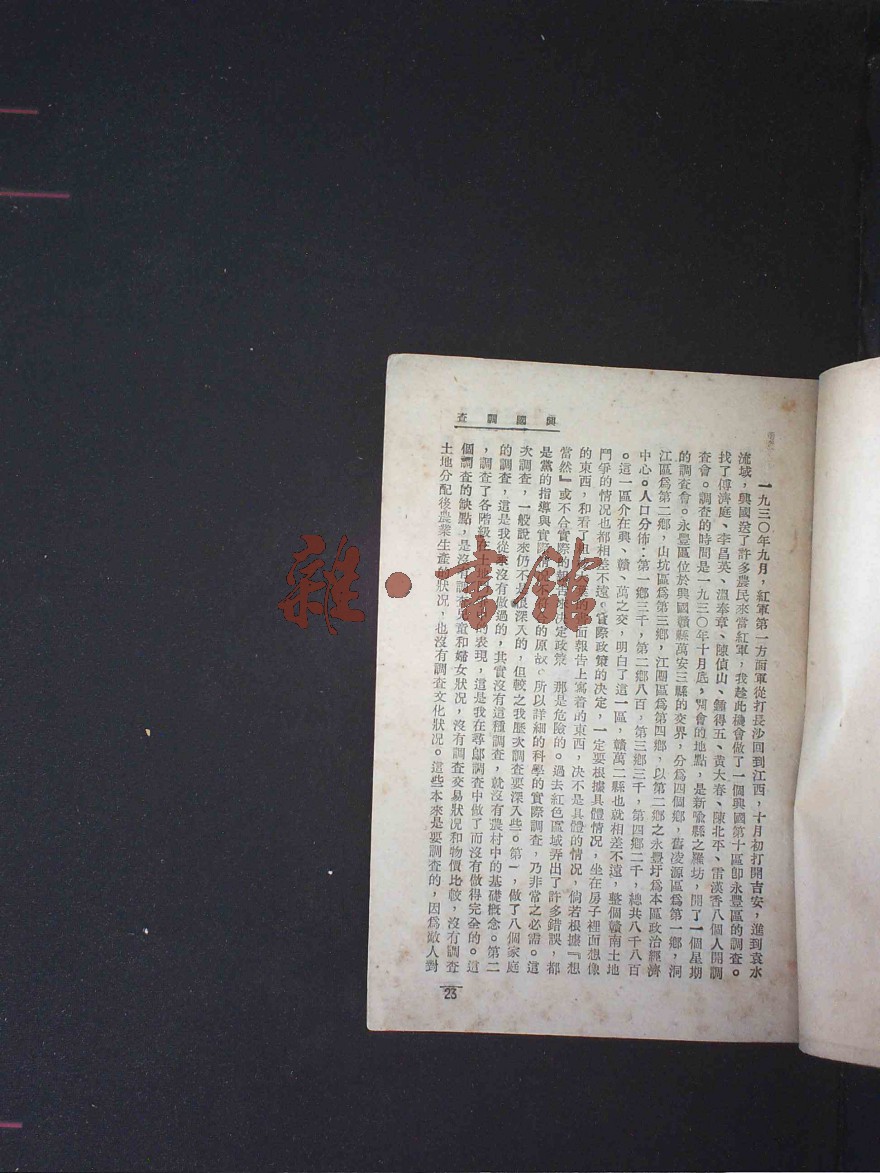 興國調查
一九三〇年九月，紅軍第一方面軍從打長沙回到江西，十月初打開吉安，進到袁水
流域，興國送了許多農民來當紅軍，我趁此機會做了一個興國第十區卽永豐區的調查。
找了傅濟庭、李昌英、溫奉章、陳偵山、鍾得五、黃大春、陳北平、雷漢香八個人開調
查會。調查的時間是一九三〇年十月底，開會的地點，是新喩縣之羅坊，開了一個星期
的調查會。永豐區位於興國贛縣萬安三縣的交界，分爲四個鄉，舊凌源區爲第一鄉，洞
江區爲第二鄉，山坑區爲第三鄉，江團區爲第四鄉，以第二鄉之永豐圩爲本區政治經濟
中心。人口分佈：第一鄉三千，第二鄉八百，第三鄉三千，第四鄉二千，總共八千八百
。這一區介在興、贛、萬之交，明白了這一區，贛萬二縣也就相差不遠，整個贛南土地
鬥爭的情况也都相差不遠。實際政策的決定，一定要根據具體情况，坐在房子裡面想像
的東西，和看了的面報告上寫着的東西，决不是具體的情况，倘若根據『想
當然』或不合實際的報告來決定政策，那是危險的。過去紅色區域弄出了許多錯誤，都
是黨的指導與實際不的原故。所以詳細的科學的實際調查，乃非常之必需。這
次調查，一般說來仍不是很深入的，但較之我歷次調查要深入些。第一，做了八個家庭
的調查，這是我從來沒有做過的，其實沒有這種調查，就沒有農村中的基礎概念。第二
，調查了各階級土地的表現，這是我在尋鄔調查中做了而沒有做得完全的。這
個調查的缺點，是沒有調查兒童和婦女狀况，沒有調查交易狀况和物價比較，沒有調查
土地分配後農業生產的狀况，也沒有調查文化狀况。這些本來是要調查的，因爲敵人對
23
雜·書館